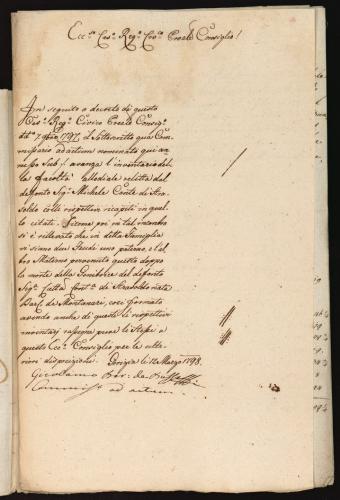 Ecc:o Ces:o Reg:o Civ:o Prov:le Consiglio!
In seguito a decreto di questo
Ces:o Reg:o Civico Prov:le Consig:o
dd:o 7 9bre 1797, il Sottoscritto qual Com-
missario ad actum nominato qui an-
nesso Sub / avanza l'inventario del-
la facoltà allodiale relitta dal
defonto Sig:r Michele Conte di Ara-
soldo colli rispettivi ricapiti in quel-
lo citati. Siccome poi in tal incontro
si è rillevato che in detta Famiglia
vi siano due Feudi uno paterno, e l'al-
tro Materno pervenuto questo doppo
la morte della Genitrice del defonto
Sig:a Catta Cont:a de Arasoldo nata
Bar:a de Montanari, così formato
avendo anche di questi li rispettivi
inventarj rassegna pure li stessi a
questo Ecc:o Consiglio per le ulte-
riori disposizioni. Gorizia li 12 Marzo 1798.
Girolamo Bar: de
Commiss:o ad actum